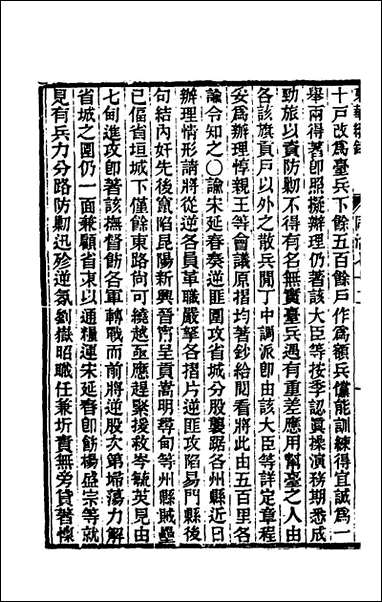 十戶改爲臺兵下餘五百餘戶作爲額兵儻能訓練得宜誠爲一
舉兩得著卽照擬辦理仍著該大臣等按季認眞操演務期悉成
勁旅以資防勦不得有名無實臺兵遇有重差應用幫臺之人由
各該旗貢戶以外之散兵閒丁中調派卽由該大臣等詳定章程
妥爲辦理惇親王等會議原摺均著鈔給閱看將此由五百里各
諭令知之〇諭宋延春奏逆匪圍攻省城分股襲踞各州縣近日
辦理情形請將從逆各員革職嚴拏各摺片逆匪攻陷易門縣後
句結內奸先後竄陷昆陽新興晉甯呈貢嵩明尋甸等州縣賊壘
已偪省垣城下僅餘東路尙可繞越亟應趕緊援救岑毓英見由
七甸進攻卽著該撫督飭各軍轉戰而前將逆股次第埽蕩力解
省城之圍仍一面兼顧省東以通糧運宋延春卽飭楊盛宗等就
見有兵力分路防勦迅殄逆氛劉嶽昭職任兼圻責無旁貸著懍